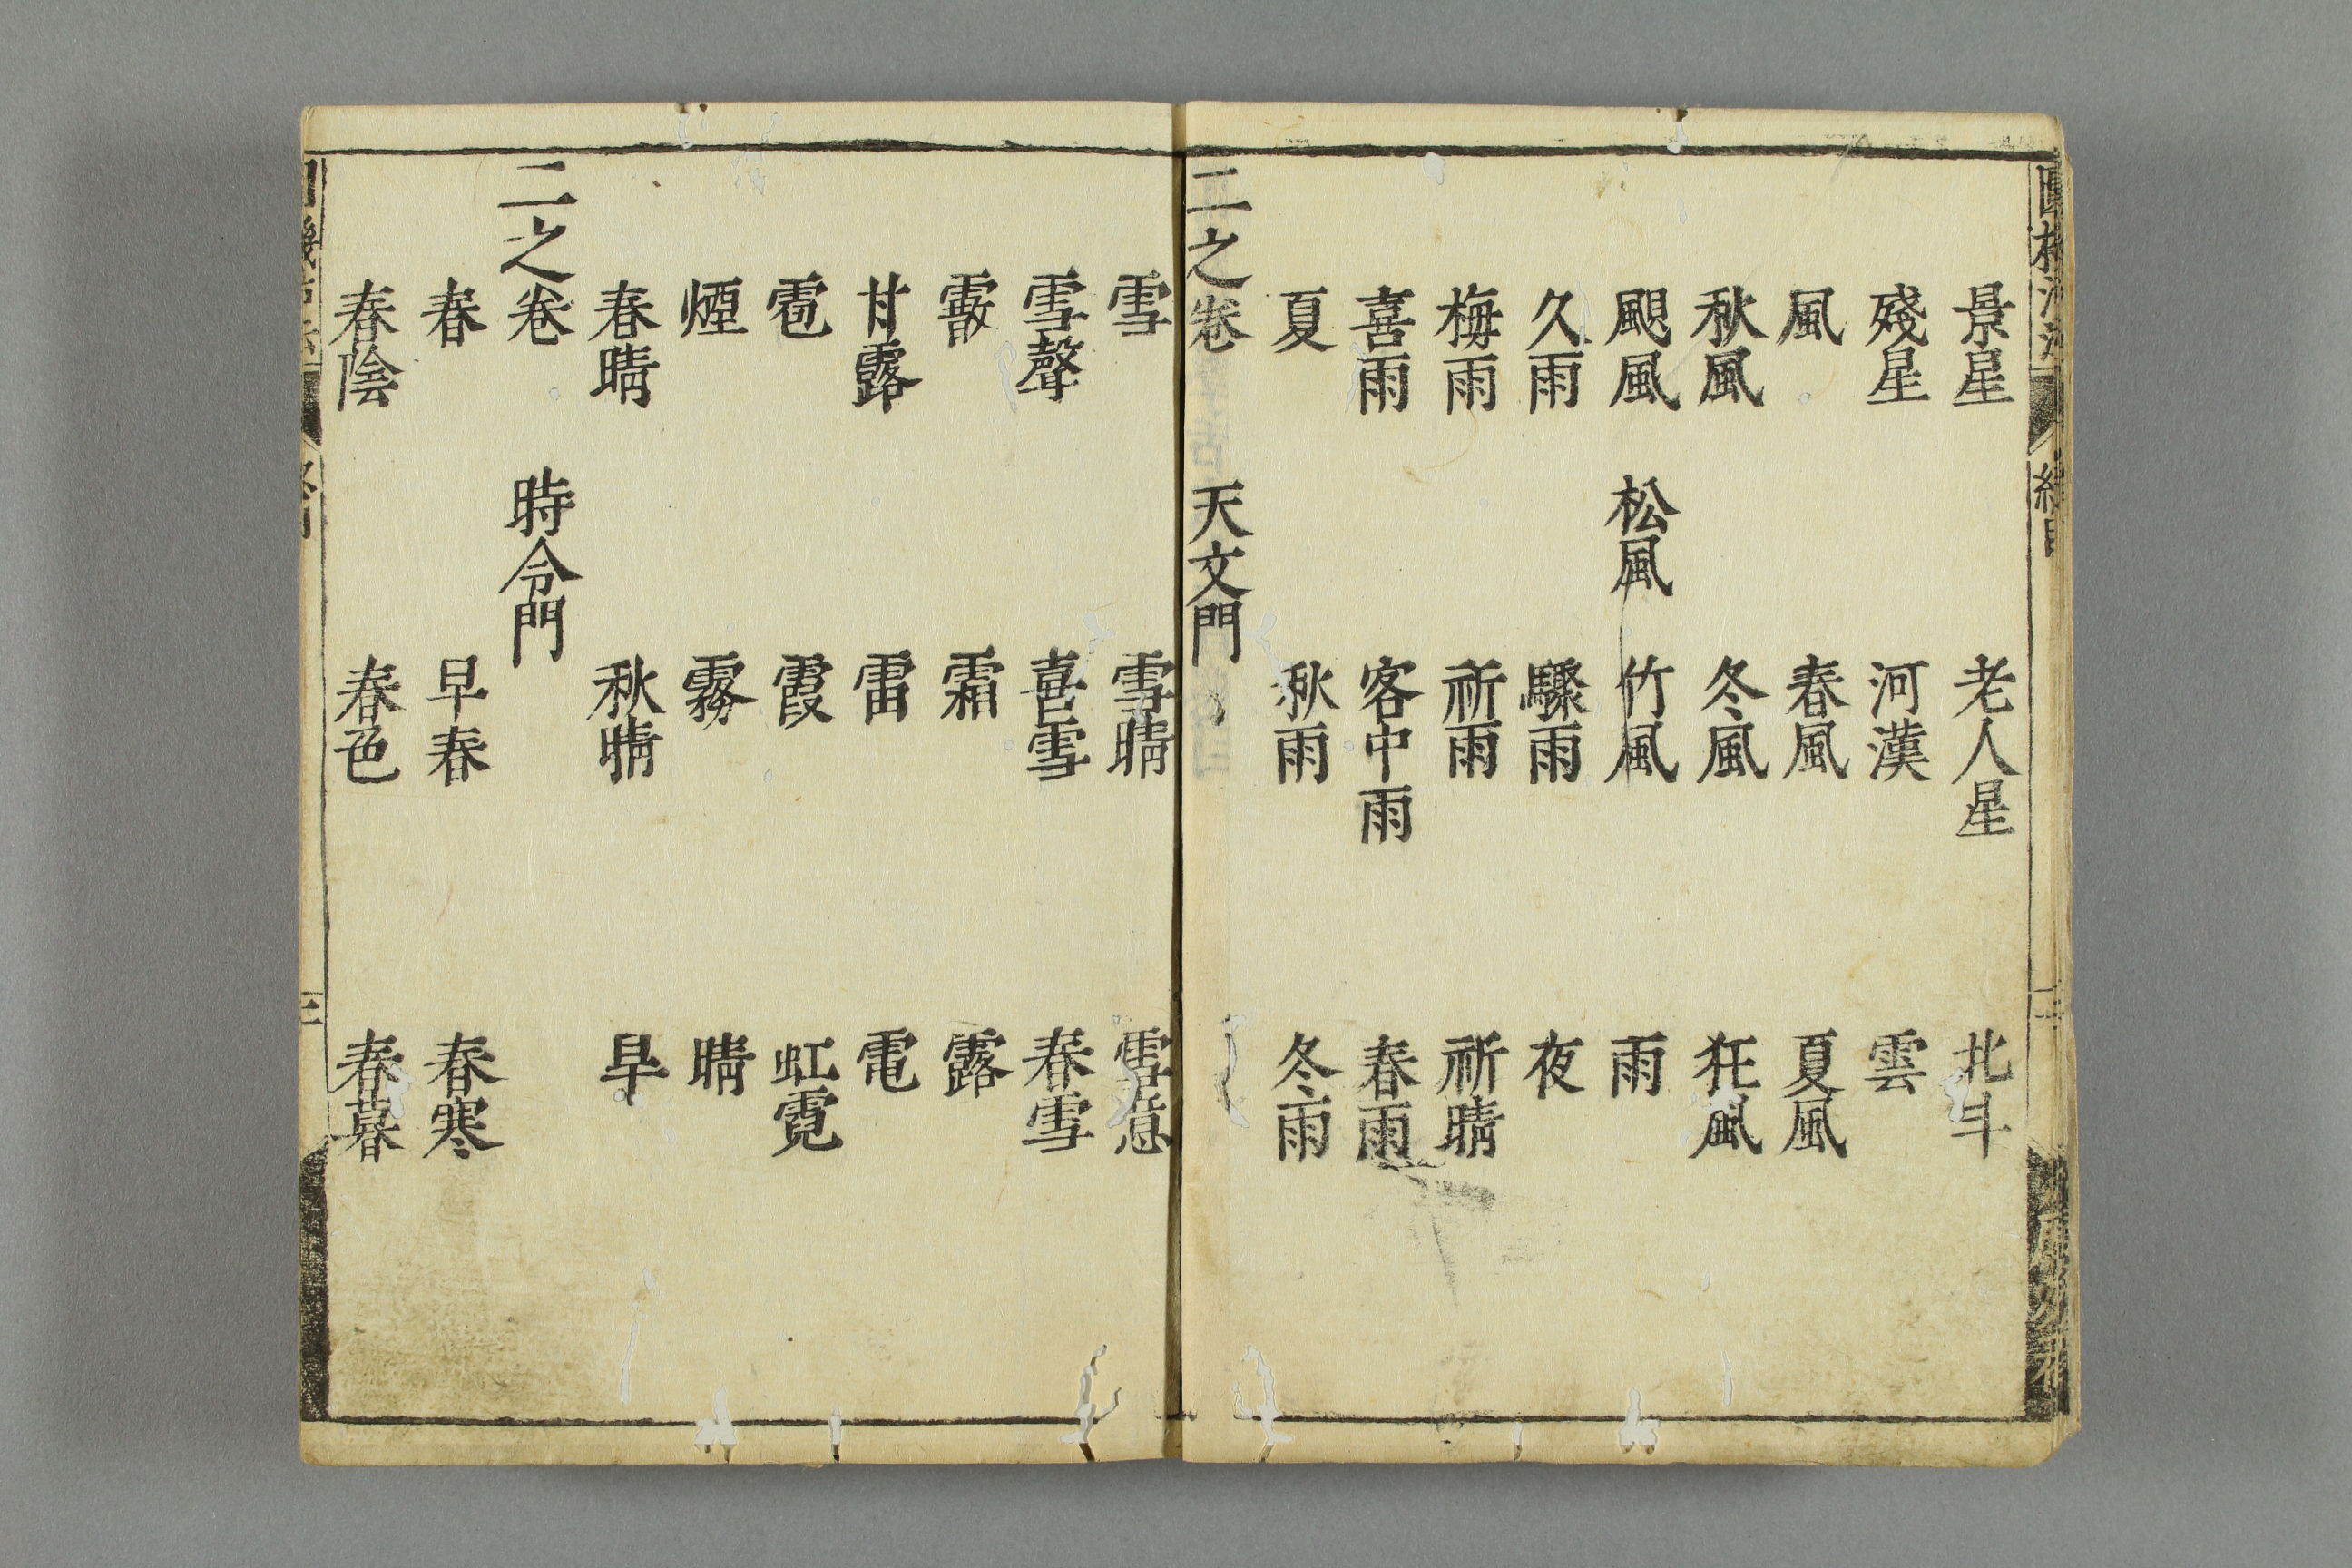 景星 老人星 北斗
殘星 河漢 雲
風 春風 夏風
秋風 冬風 狂風
颶風 松風 竹風 雨
久雨 驟雨 夜
梅雨 祈雨 祈晴
喜雨 客中雨 春雨
夏 秋雨 冬雨
二之卷 天文門
雪 雪晴 雪意
雪聲 喜雪 春雪
霰 霜 露
甘露 雷 電
雹 霞 虹霓
煙 霧 晴
春晴 秋晴 旱
二之卷 時令門
春 早春 春寒
春陰 春色 春暮